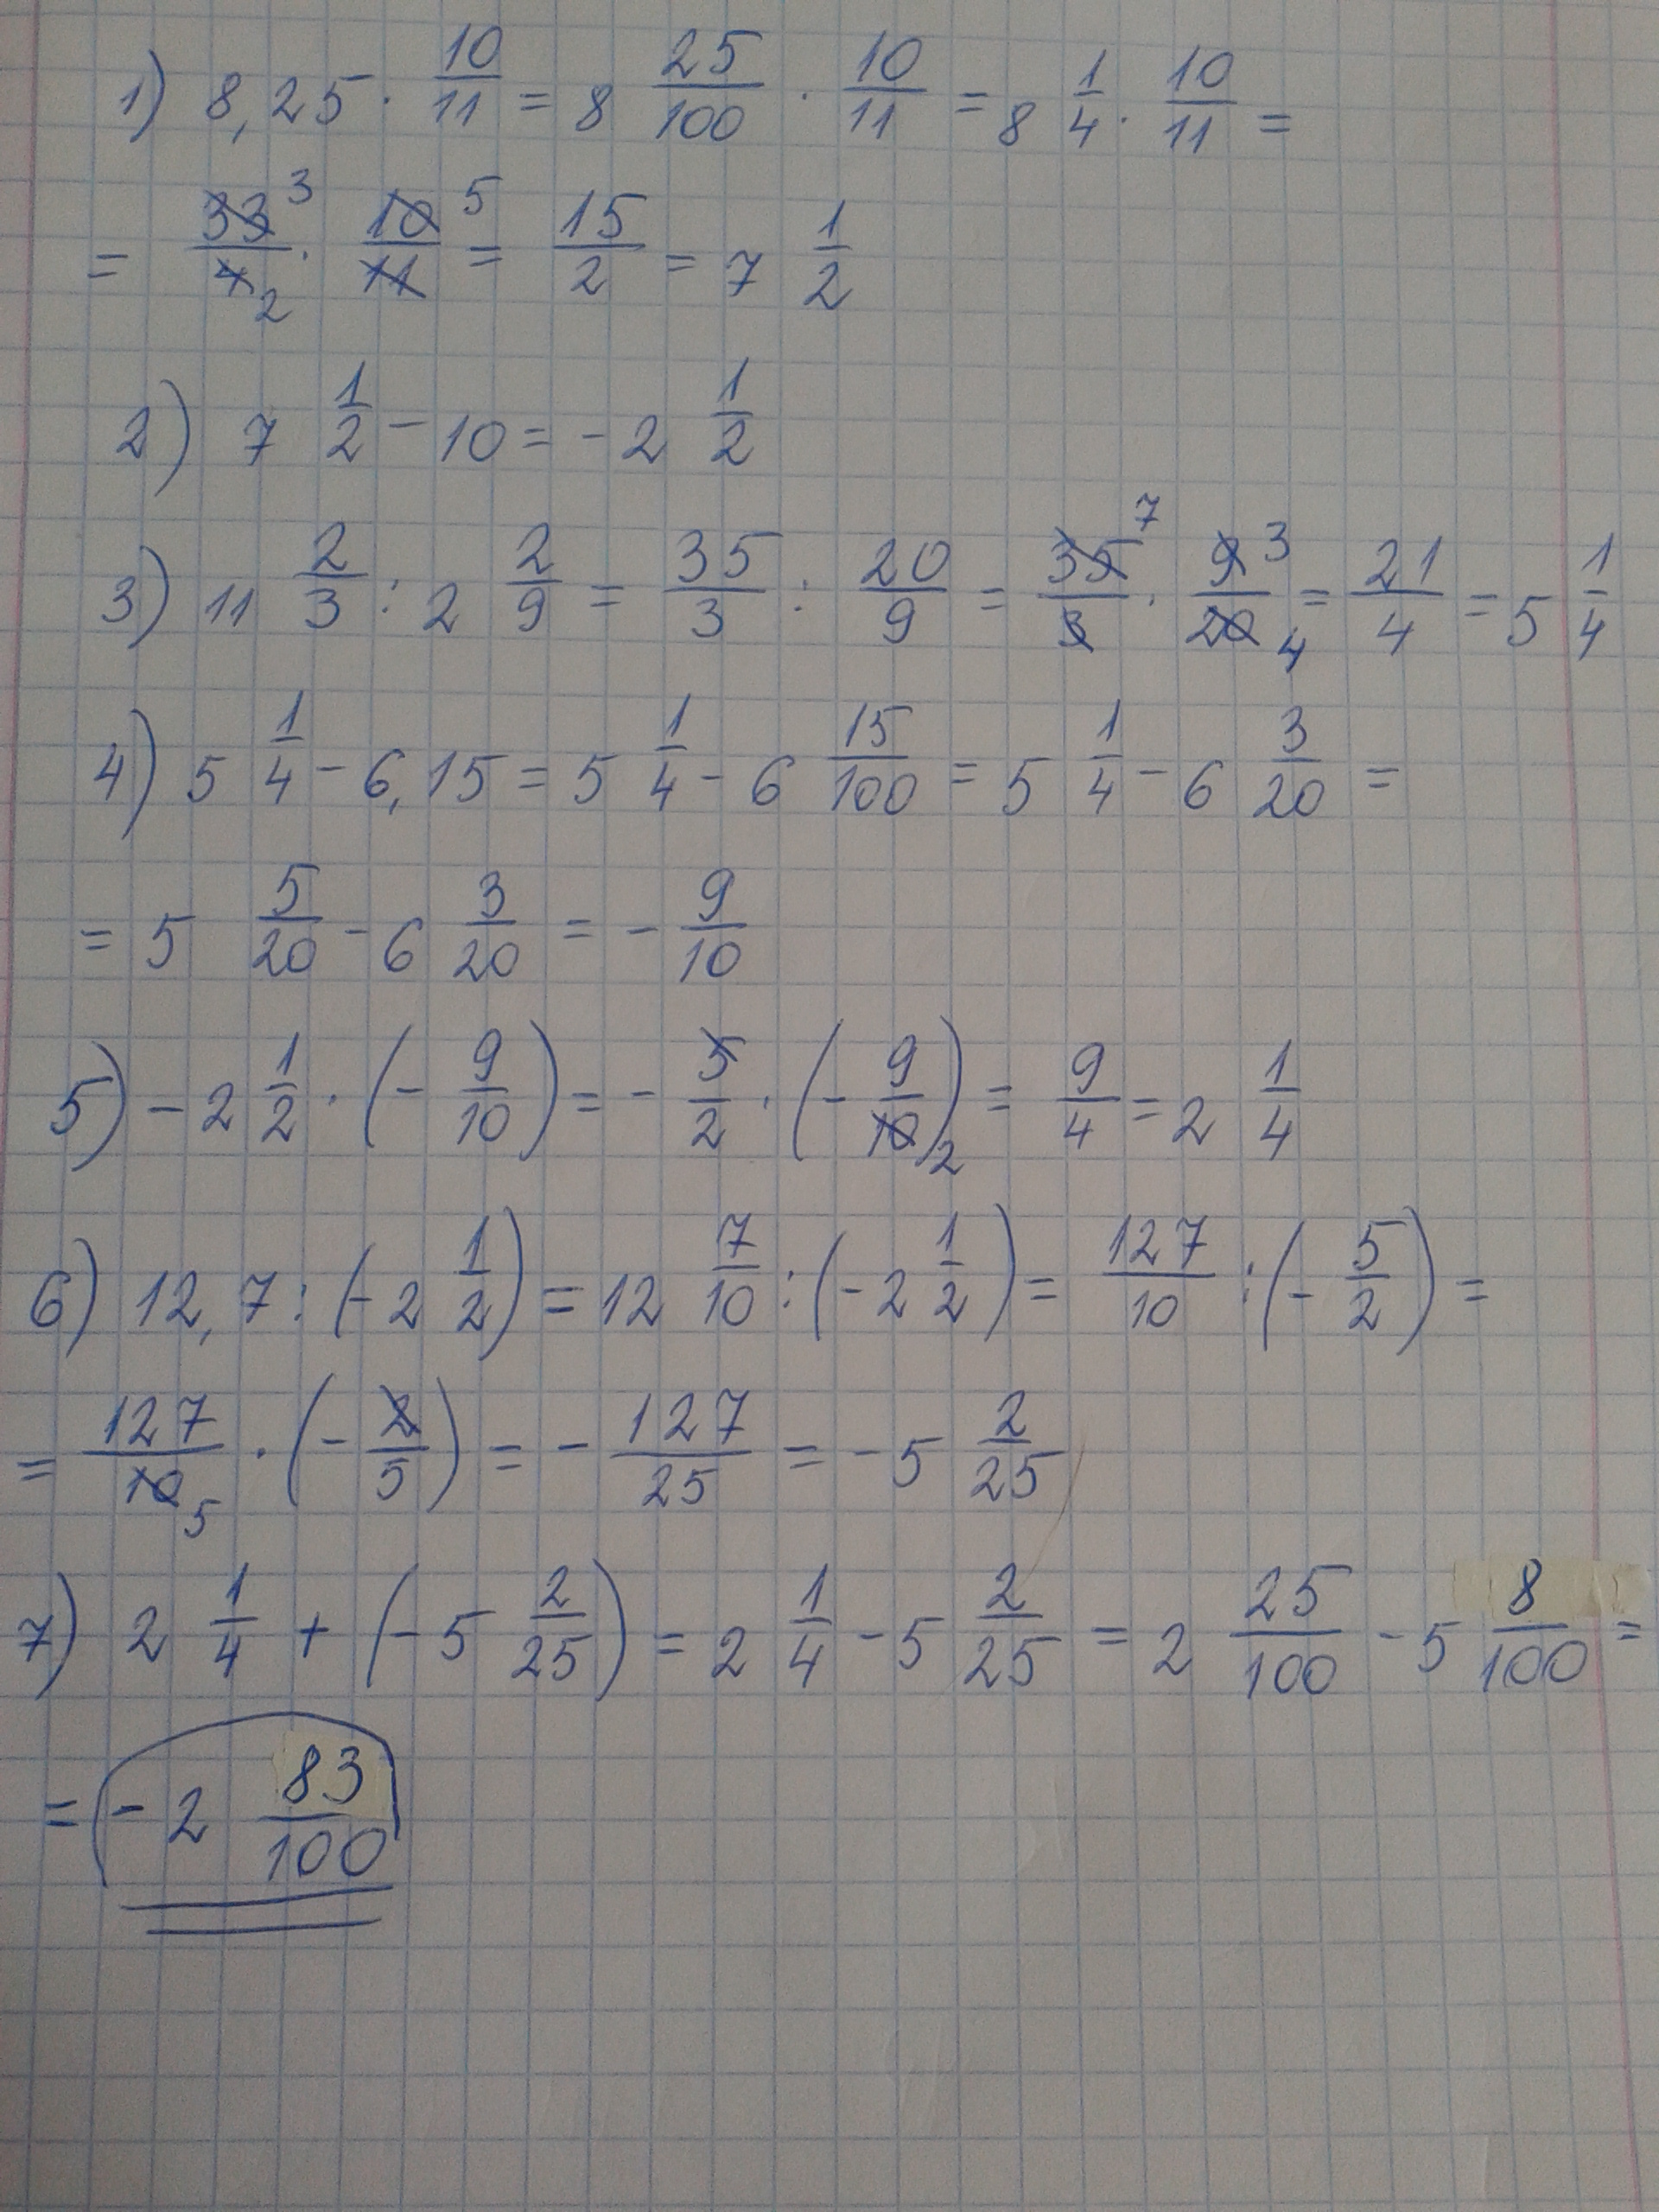 1) 8,25 · 10/11 = 8 25/100 · 10/11 = 8 1/4 · 10/11 =
= 33/4 3 2 · 10/11 5 = 15/2 = 7 1/2
2) 7 1/2 - 10 = - 2 1/2
3) 11 2/3 : 2 2/9 = 35/3 : 20/9 = 35/3 7 · 9/20 3 4 = 21/4 = 5 1/4
4) 5 1/4 - 6,15 = 5 1/4 - 6 15/100 = 5 1/4 - 6 3/20 =
= 5 5/20 - 6 3/20 = - 9/10
5) - 2 1/2 · (- 9/10) = - 5/2 · (- 9/10) 2 = 9/4 = 2 1/4
6) 12,7 : (- 2 1/2) = 12 7/10 : (- 2 1/2) = 127/10 : (- 5/2) =
= 127/10 5 · (- 2/5) = - 127/25 = - 5 2/25
7) 2 1/4 + (- 5 2/25) = 2 1/4 - 5 2/25 = 2 25/100 - 5 8/100 =
= - 2 83/100